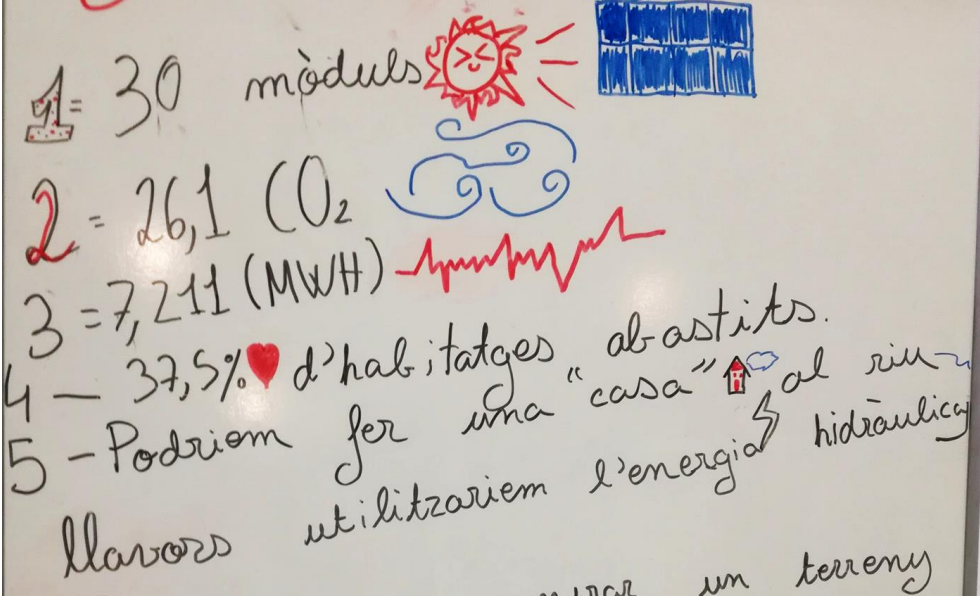 1= 30 mòduls
2 = 26,1 CO₂
3 = 7,211 (MWH)
4 — 37,5% d'habitatges abastits.
5 - Podriem fer una "casa" al riu
llavors utilitzariem l'energia hidràulica
un terreny